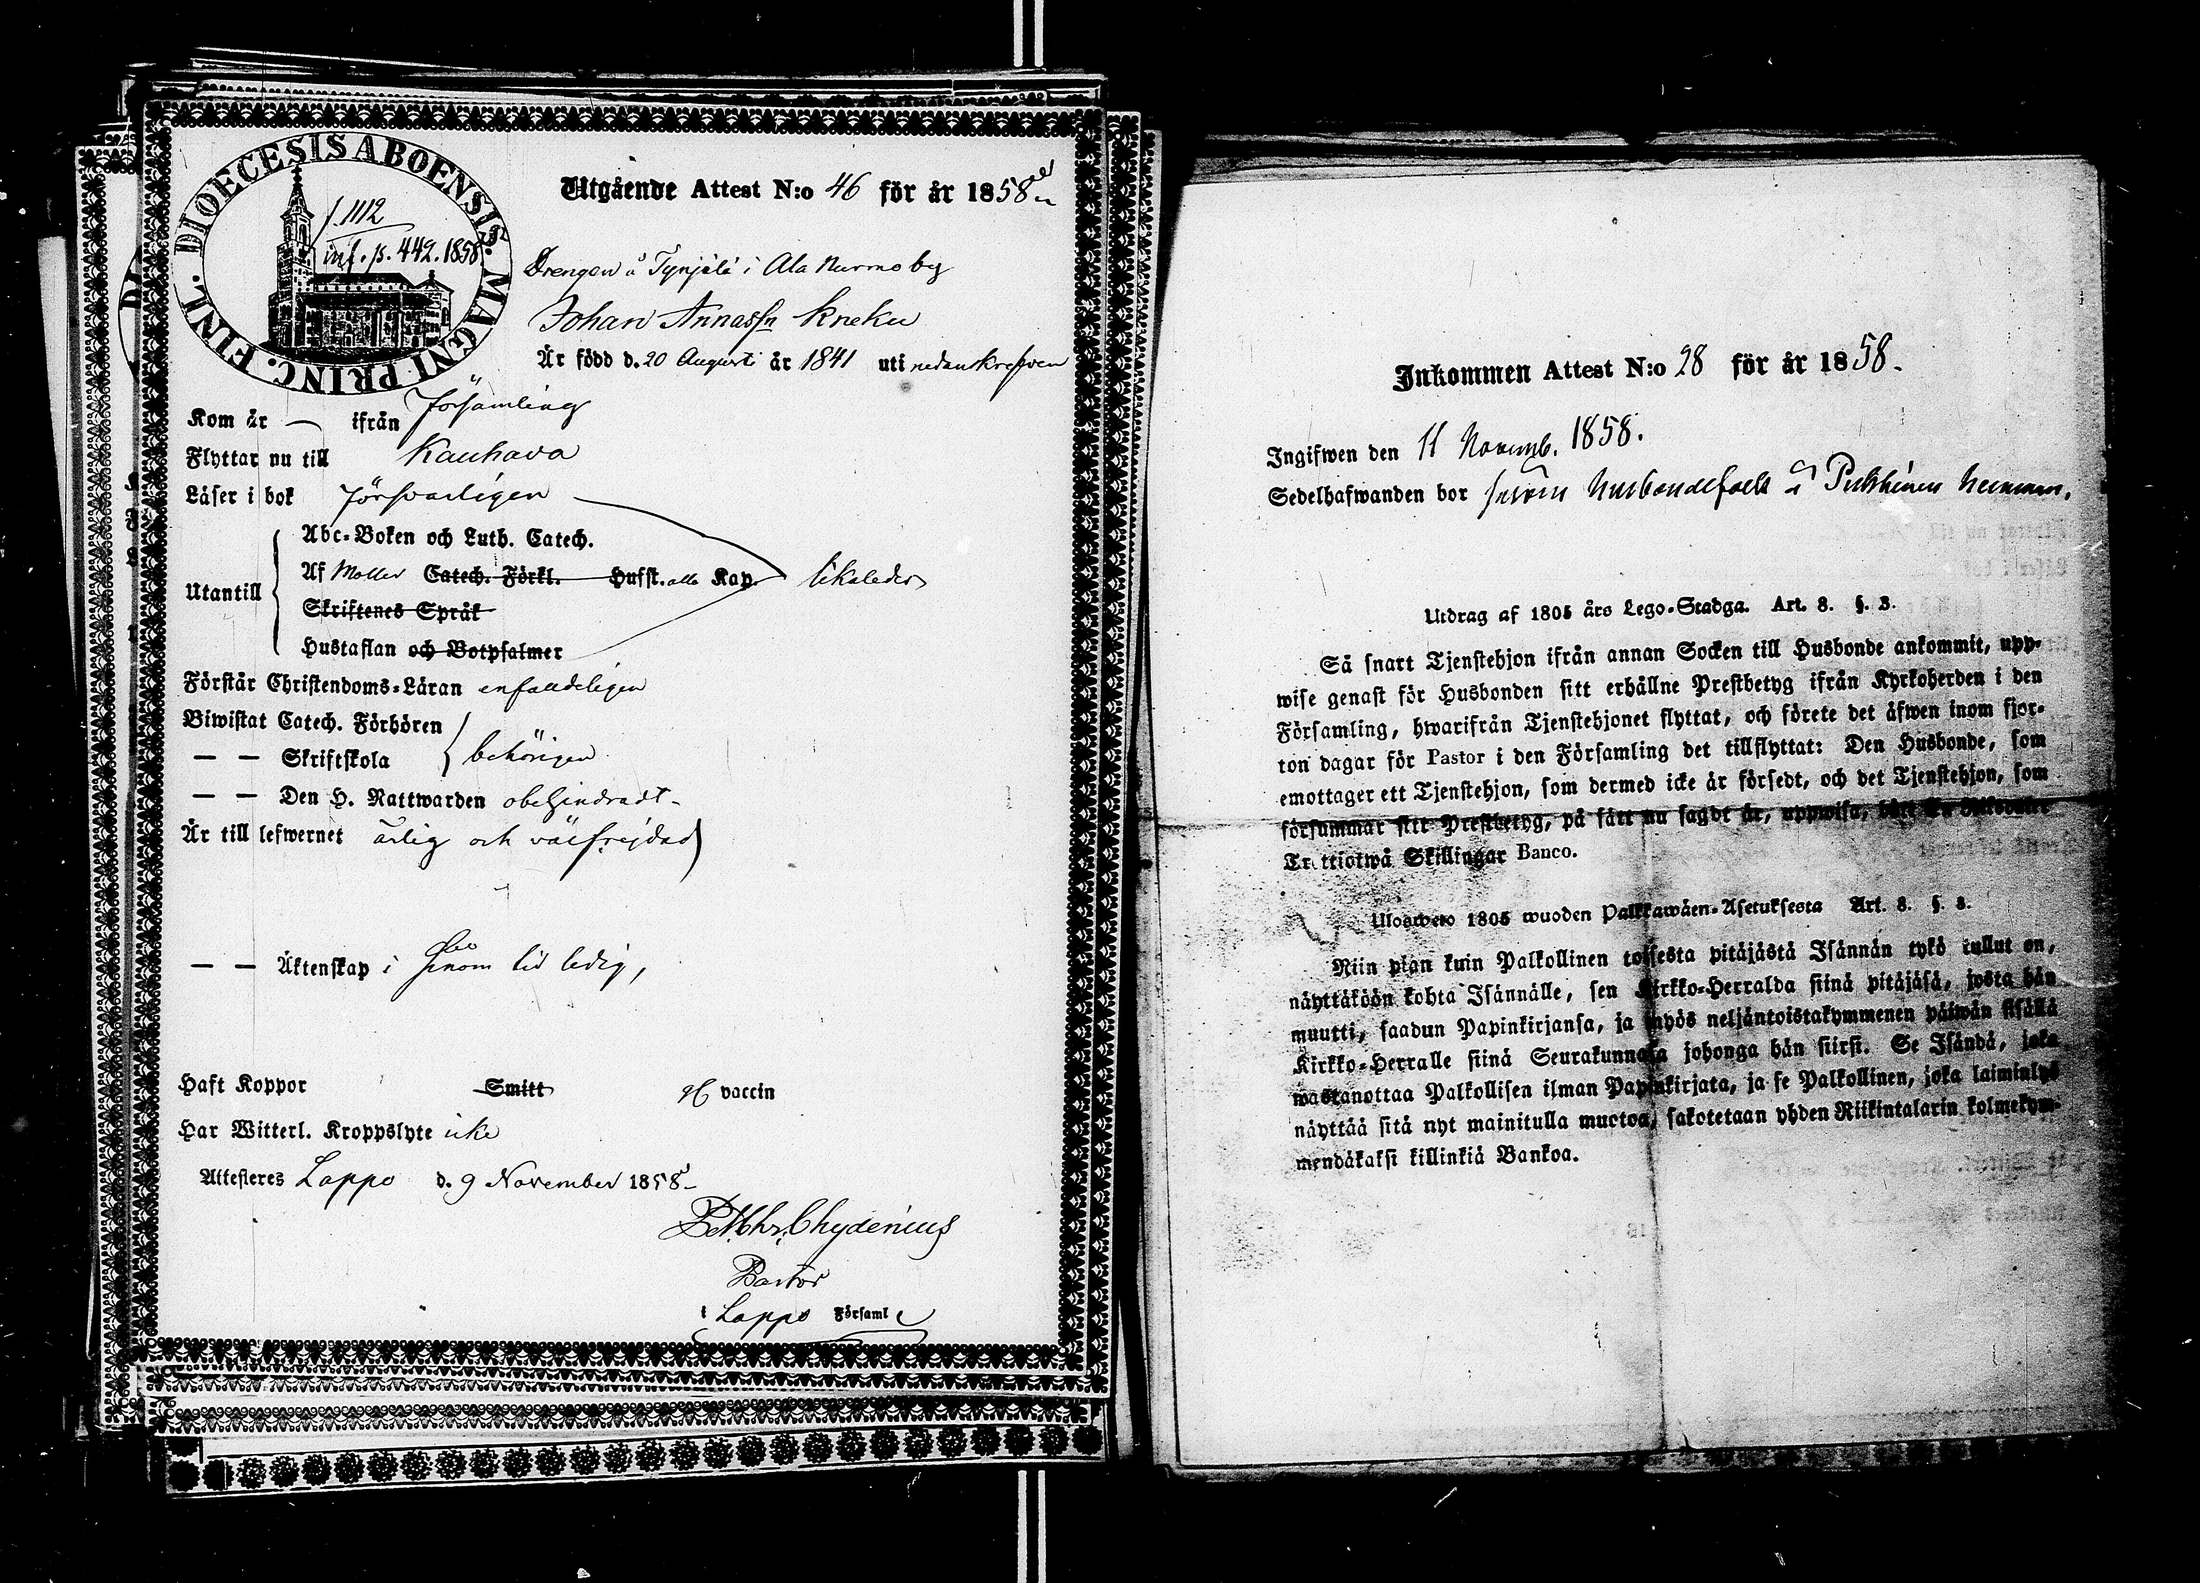 DIOECESIS ABOENSIS. MAGNI PRINC. FINL.
f. 1112
inf. p. 442. 1858
Utgående Attest N:o 46 för år 1858
Drengen å Tynjälä i Ala Nurmo by
Johan Annasſn Kneku
Är född d. 20 Augusti år 1841 uti nedanskrefven
Församling
Kom år — ifrån
Flyttar nu till Kauhava
Läser i bok försvarligen
Abc-Boken och Luth. Catech.
Utantill
Af Möller Catech. Förkl. Husst. alla Kap. likaledes
Skriftenes Språk
Hustaflan och Botpsalmer
Förstår Christendoms-Läran enfalldeligen
Biwistat Catech. Förhören
— — Skriftskola behörigen
— — Den H. Nattwarden obehindradt
Är till lefwernet ärlig och välfrejdad
— — Äktenskap i ledig,
Haft Koppor Smitt vaccin
Har Witterl. Kroppslyte icke
Attesteres Lappo d. 9 November 1858
Chydenius
Pastor
i Lappo Församl
Inkommen Attest N:o 28 för år 1858.
Ingifwen den 11 Novemb. 1858.
Sedelhafwanden bor
Utdrag af 1805 års Lego-Stadga. Art. 8. §. 3.
Så snart Tjenstehjon ifrån annan Socken till Husbonde ankommit, upp-
wise genast för Husbonden sitt erhållne Prestbetyg ifrån Kyrkoherden i den
Församling, hwarifrån Tjenstehjonet flyttat, och förete det äfwen inom fjor-
ton dagar för Pastor i den Församling det tillflyttat: Den Husbonde, som
emottager ett Tjenstehjon, som dermed icke är försedt, och det Tjenstehjon, som
försummar sitt Prestbetyg, på sätt nu sagdt är, uppwisa,
Trettiotwå Skillingar Banco.
Ulosweto 1805 wuoden Palkkawäen-Asetuksesta Art. 8. §. 3.
Niin pian kuin Palkollinen toisesta pitäjästä Isännän tykö tullut on,
näyttäköön kohta Isännälle, sen Kirkko-Herralda siinä pitäjäsä, josta hän
muutti, saadun Papinkirjansa, ja myös neljäntoistakymmenen päiwän sisällä
Kirkko-Herralle siinä Seurakunnasa johonga hän siirsi. Se Isändä, joka
wastanottaa Palkollisen ilman Papinkirjata, ja se Palkollinen, joka laiminlyö
näyttää sitä nyt mainitulla muotoa, sakotetaan yhden Riikintalarin kolmekym-
mendäkaksi killinkiä Bankoa.